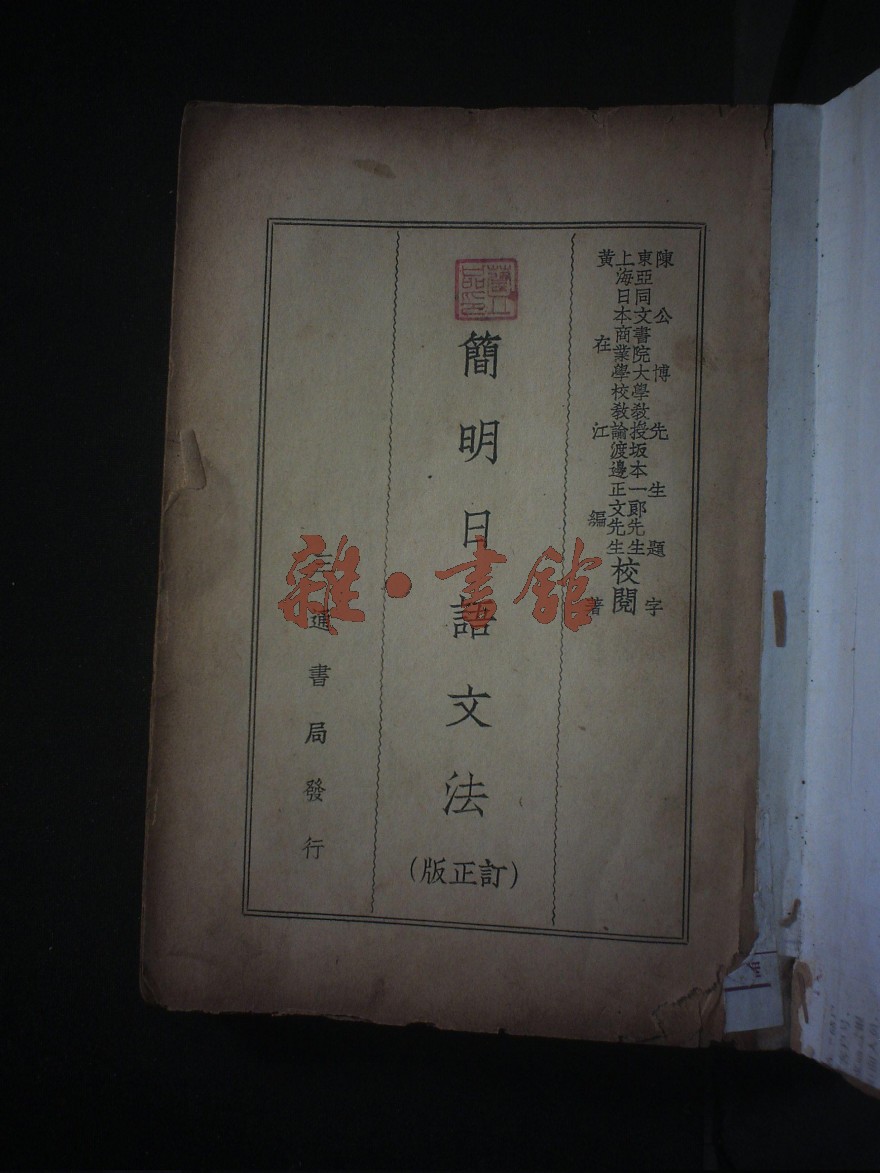 陳公博先生題字
東亞同文書院大學教授坂本一郎先生
上海日本商業學校教諭渡邊正文先生
校閱
黃在江編著
簡明日語文法
(訂正版)
三通書局發行
雜·書館